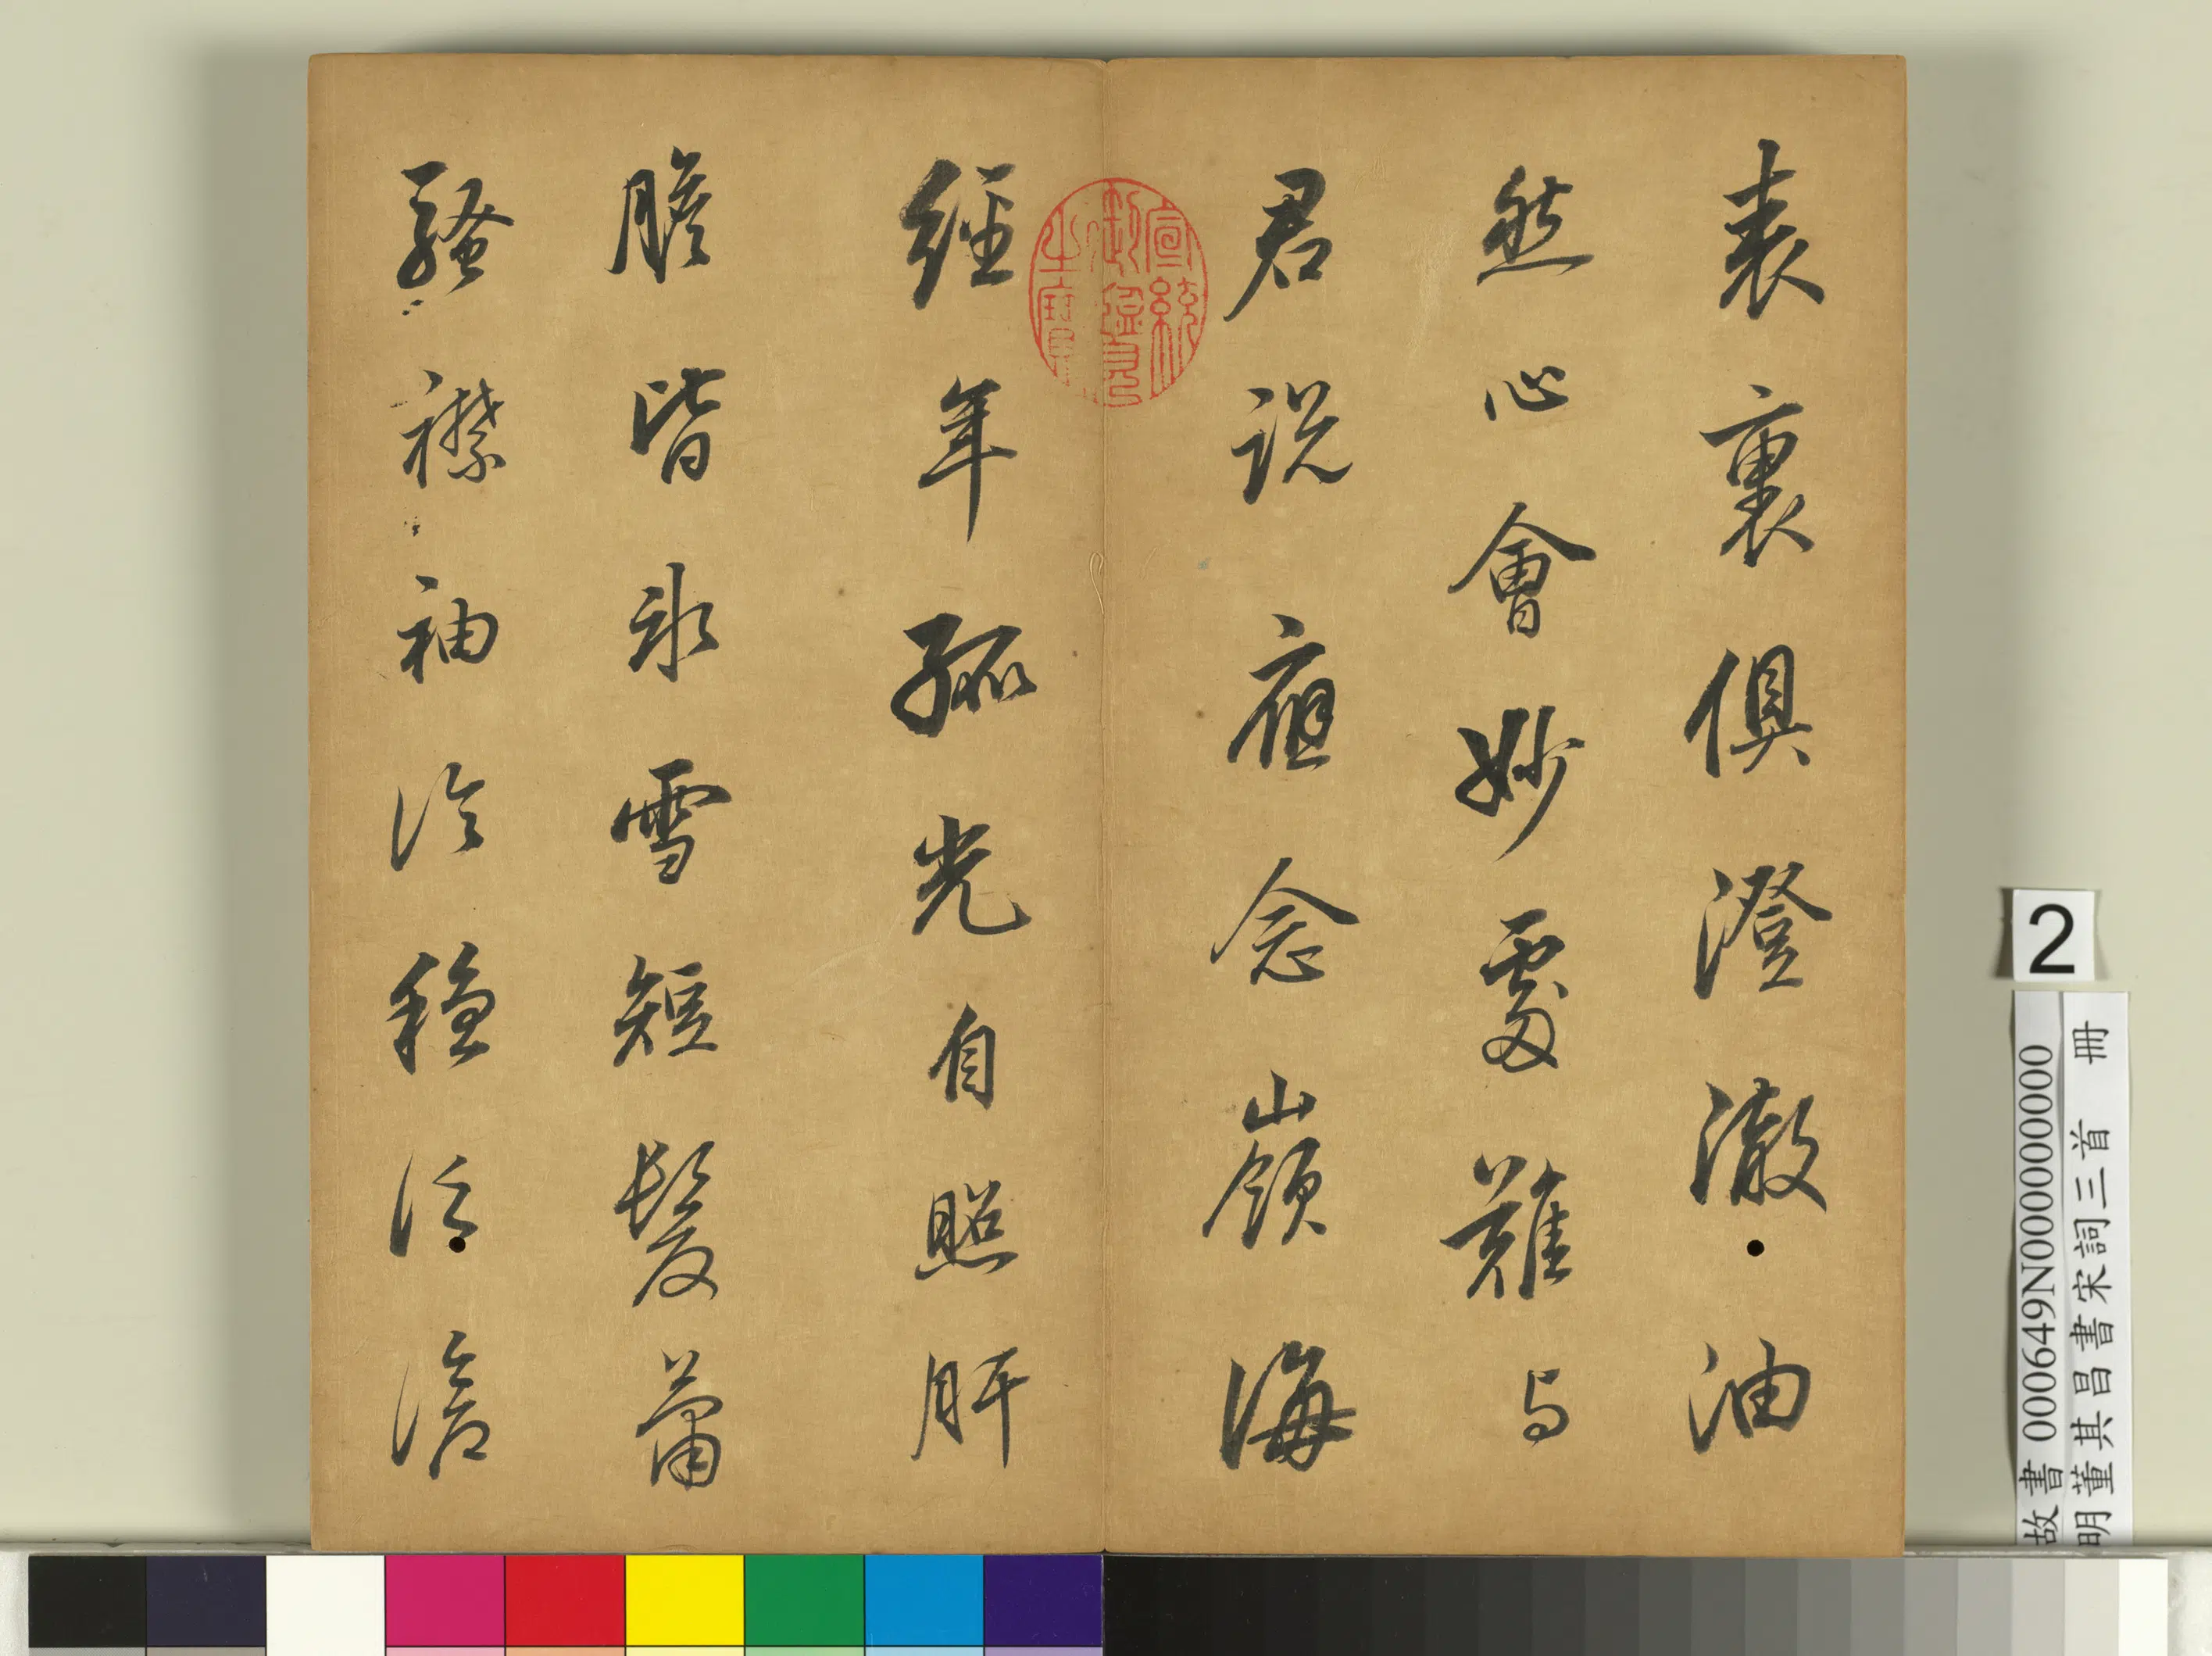 表裏俱澄澈油
然心會妙處難与
君說應念嶺海
經年孤光自照肝
膽皆氷雪短髮蕭
騷襟袖冷穩泛滄
宣統御覽之寶
2
故書 000649N000000000
明董其昌書宋詞三首 冊